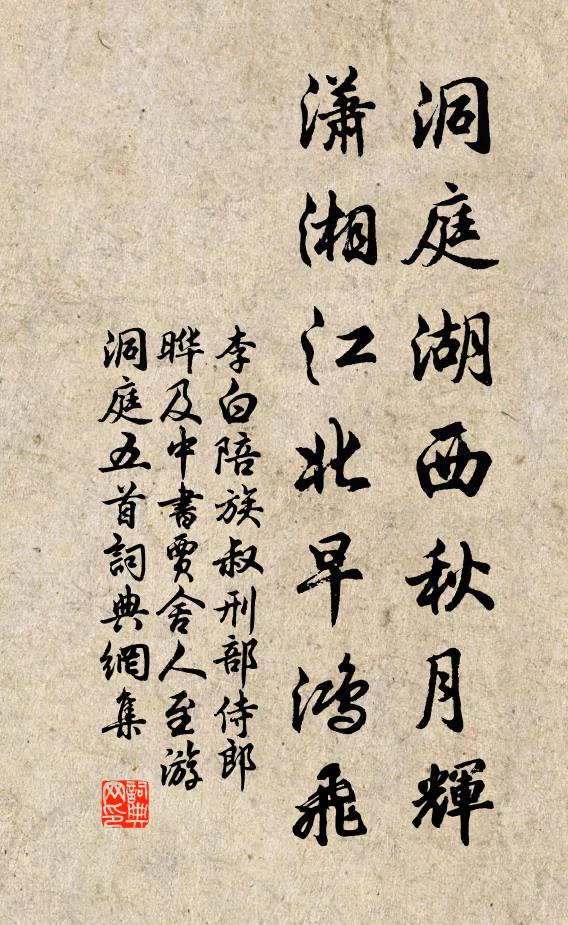 洞庭湖西秋月輝
瀟湘江北早鴻飛
李白陪族叔刑部侍郎
曄及中書賈舍人至游
洞庭五首詞典網集
詞典
网印